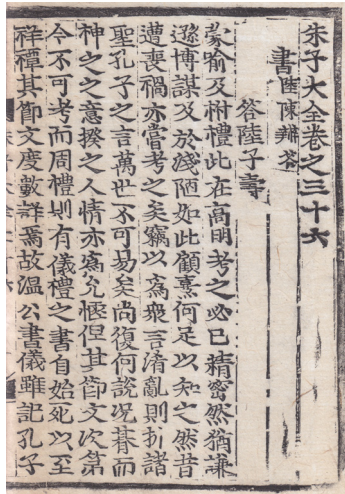 朱子大全卷之三十六
書 陸陳辯答
答陸子壽
蒙喻及祔禮此在高明考之必已精密然猶謙
遜博謀及於淺陋如此顧熹何足以知之然昔
遭喪禍亦嘗考之矣竊以爲衆言淆亂則折諸
聖孔子之言萬世不可易矣尚復何說况朞而
神之之意揆之人情亦爲允愜但其節文次第
今不可考而周禮則有儀禮之書自始死以至
祥禫其節文度數詳焉故温公書儀雖記孔子